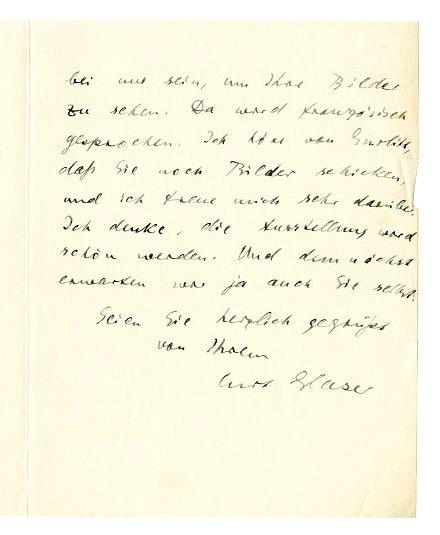 bei uns sein, um Ihre Bilder
zu sehen. Da wird französisch
gesprochen. Ich höre von Gurlitt,
daß Sie noch Bilder schicken,
und ich freue mich sehr darüber.
Ich denke, die Ausstellung wird
schön werden. Und demnächst
erwarten wir ja auch Sie selbst.
Seien Sie herzlich gegrüßt
von Ihrem
Curt Glaser